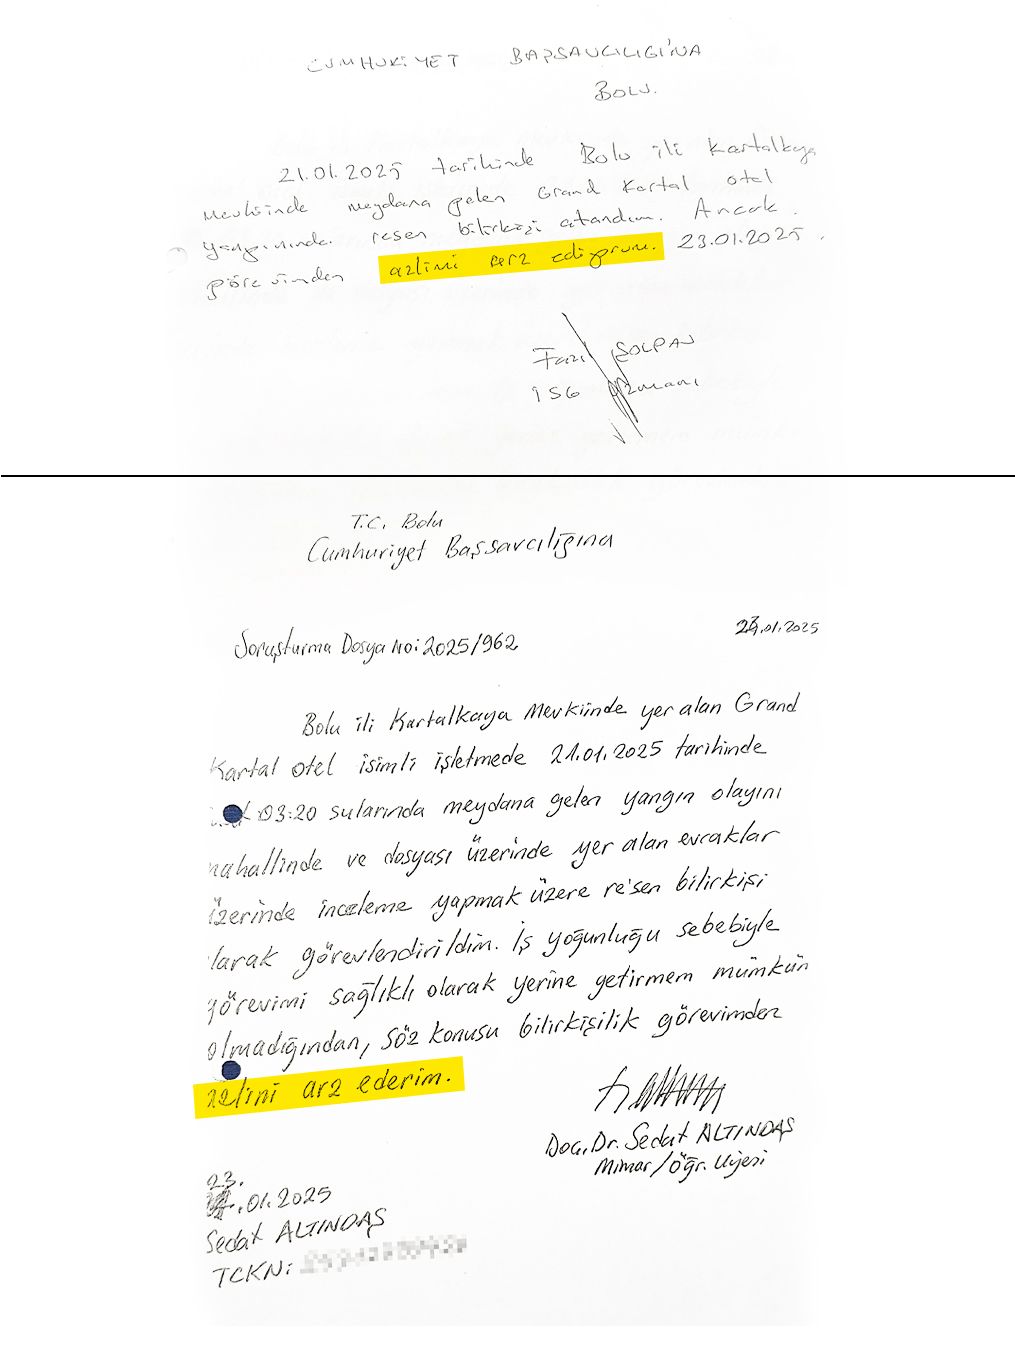 CUMHURİYET BAŞSAVCILIĞI'NA
BOLU.
21.01.2025 tarihinde Bolu ili Kartalkaya
mevkiinde meydana gelen Grand Kartal otel
yangınında resen bilirkişi atandım. Ancak
görevimden azlimi arz ediyorum. 23.01.2025.
Fazıl ŞOLPAN
İSG Uzmanı
T.C. Bolu
Cumhuriyet Başsavcılığına
23.01.2025
Soruşturma Dosya No: 2025/962
Bolu ili Kartalkaya Mevkiinde yer alan Grand
Kartal otel isimli işletmede 21.01.2025 tarihinde
03:20 sularında meydana gelen yangın olayını
mahallinde ve dosyası üzerinde yer alan evraklar
üzerinde inceleme yapmak üzere re'sen bilirkişi
larak görevlendirildim. İş yoğunluğu sebebiyle
görevimi sağlıklı olarak yerine getirmem mümkün
olmadığından, söz konusu bilirkişilik görevimden
azlimi arz ederim.
Doç. Dr. Sedat ALTINDAŞ
Mimar/Öğr. Üyesi
23.
.01.2025
Sedat ALTINDAŞ
TCKN: